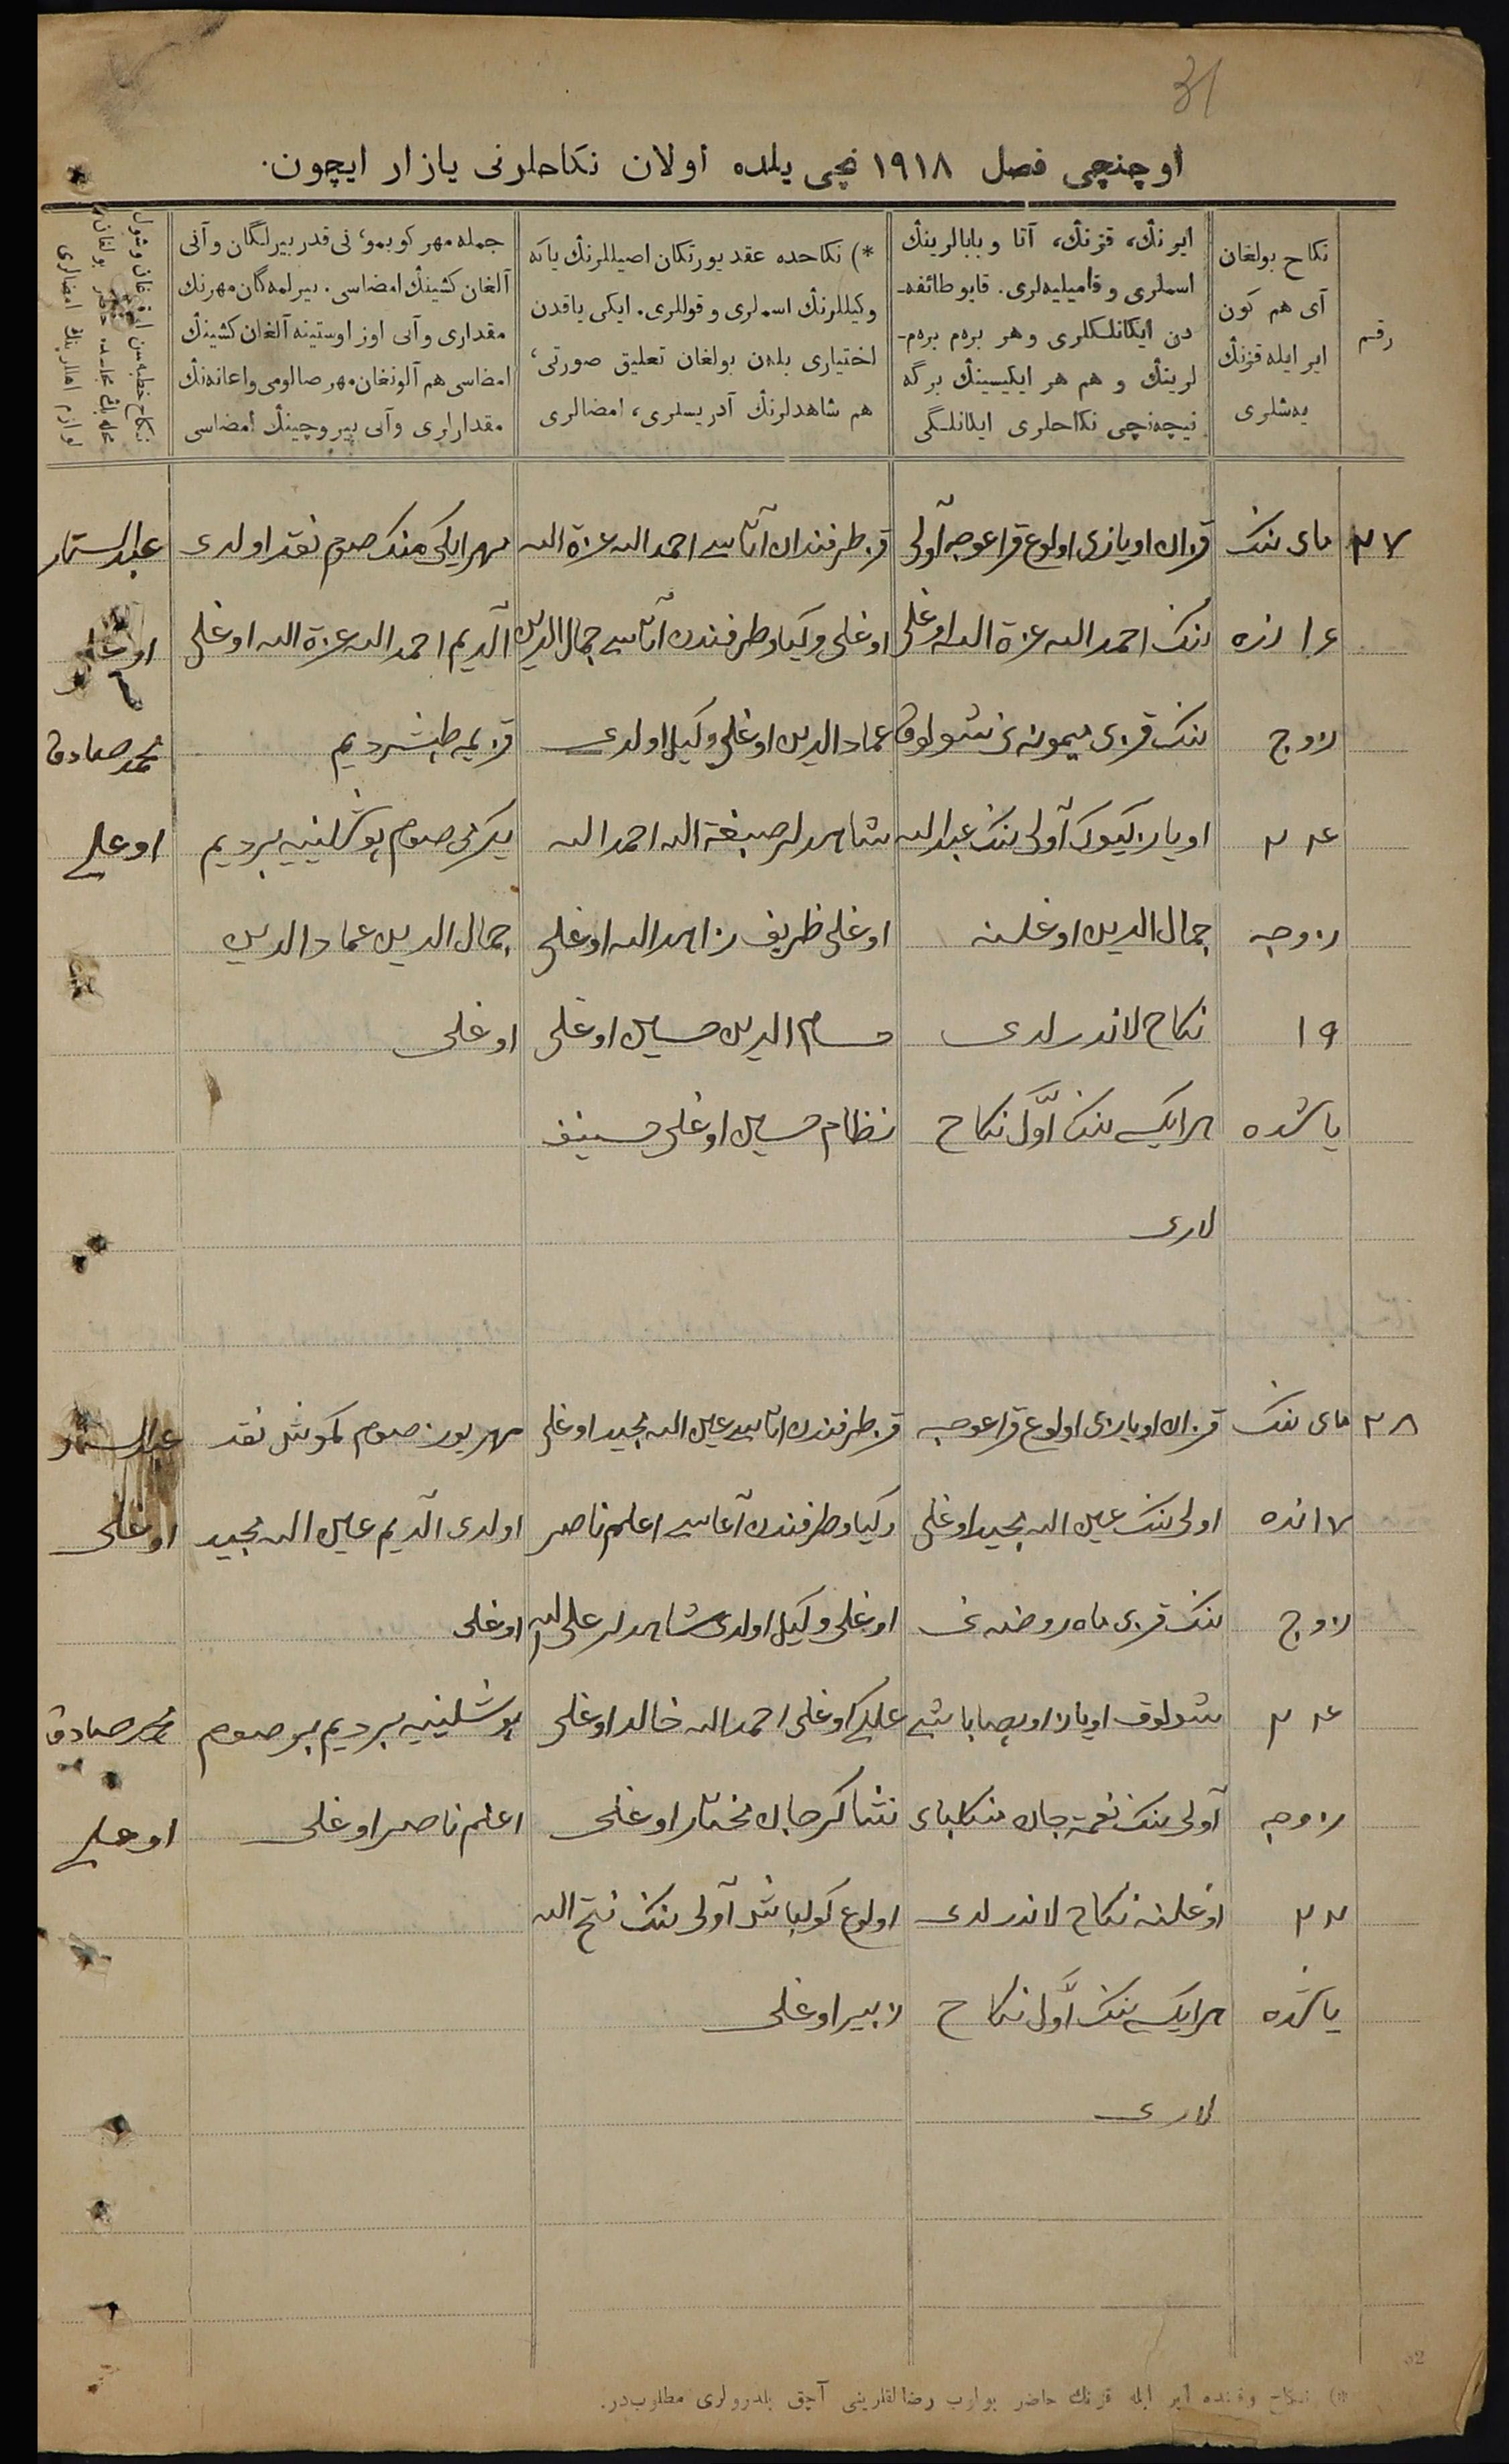 31
اوچنچی فصل ۱۹۱۸ نچی یلده اولان نکاحلرنی یازار ایچون.
رقم
نکاح بولغان
آی هم کون
ایر ایله قزنڭ
یەشلری
ایرنڭ، قزنڭ، آتا و بابالرینڭ
اسملری و فامیلیەلری. قایو طائفه-
دن ایکانلکلری و هر برەم برەم-
لرینڭ و هم هر ایکیسینڭ برگه
نیچەنچی نکاحلری ایکانلگی
*) نکاحده عقد یورتکان اصیللرنڭ یاکه
وکیللرنڭ اسملری و قوللری. ایکی یاقدن
اختیاری بلەن بولغان تعلیق صورتی،
هم شاهدلرنڭ آدریسلری، امضالری
جمله مهر کوبمو، نی قدر بیرلگان و آنی
آلغان کشینڭ امضاسی. بیرلمەگان مهرنڭ
مقداری و آنی اوز اوستینه آلغان کشینڭ
امضاسی هم آلونغان مهر صالومی و اعانەنڭ
مقدارلری و آنی بیروچینڭ امضاسی
نکاح خطبەسن اوقغان و شول
لوازم اهللرینڭ امضالری
۳۷
مای ننک
۱۶ نده
زوج
۲۴
زوجه
۱۹
یاشده
قزان اویازی اولوغ قراعوجه آولی
ننک احمدالله عزة الله اوغلی
ننک قزی میمونه نی شولوق
اویاز کیوک آولی ننک عبدالله
جمال الدین اوغلینه
نکاح لاندرلدی
هر ایکیسی ننک اوّل نکاح
لاری
قز طرفندان آتاسی احمدالله عزة الله
اوغلی وکیاو طرفندن آتاسی جمال الدین
عمادالدین اوغلی وکیل اولدی
شاهدلر صبغة الله احمدالله
اوغلی ظریف زاهدالله اوغلی
حسام الدین حسین اوغلی
نظام حسین اوغلی حسینف
مهر ایکی منک صوم نقد اولدی
آلدیم احمدالله عزة الله اوغلی
قزیمه طبشردیم
یکرمی صوم پوشلینه بردیم
جمال الدین عمادالدین
اوغلی
عبدالستار
اوغلی
محمد صادق
اوغلی
۳۸
مای ننک
۱۷ نده
زوج
۲۴
زوجه
۲۲
یاشده
قزان اویازی اولوغ قراعوجه
اولی ننک عین الله مجید اوغلی
ننک قزی ماه روضه نی
شولوق اویاز
آولی ننک نعمة جان منکلبای
اوغلینه نکاح لاندرلدی
هر ایکیسی ننک اوّل نکاح
لاری
قز طرفندن اتاسی عین الله مجید اوغلی
وکیاو طرفندن آغاسی اعلم ناصر
اوغلی وکیل اولدی شاهدلر
اوغلی احمدالله خالد اوغلی
شاکرجان مختار اوغلی
اولوغ کولباش آولی ننک فتح الله
زبیر اوغلی
مهر یوز صوم کموش نقد
اولدی آلدیم عین الله مجید
اوغلی
پوشلینه بردیم بر صوم
اعلم ناصر اوغلی
عبدالستار
اوغلی
محمد صادق
اوغلی
*) نکاح وقتنده ایر ایله قزنڭ حاضر بولوب رضالقلرینی آچق بلدرولری مطلوبدر.